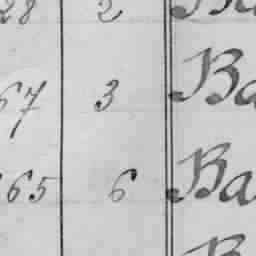 28 2 Ba
67 3 Ba
65 6 Ba